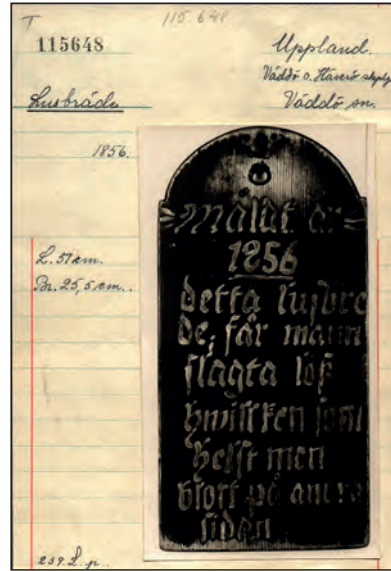 T
115.648
115648
Uppland.
Väddö o. Häverö skplg
Väddö sn.
Lusbräde
1856.
L. 51 cm.
Br. 25,5 cm.
Målat år
1856
detta lusbre
de, får mann
slagta löß
hwilcken som
helst men
blott på andra
sidan
259. L. p.